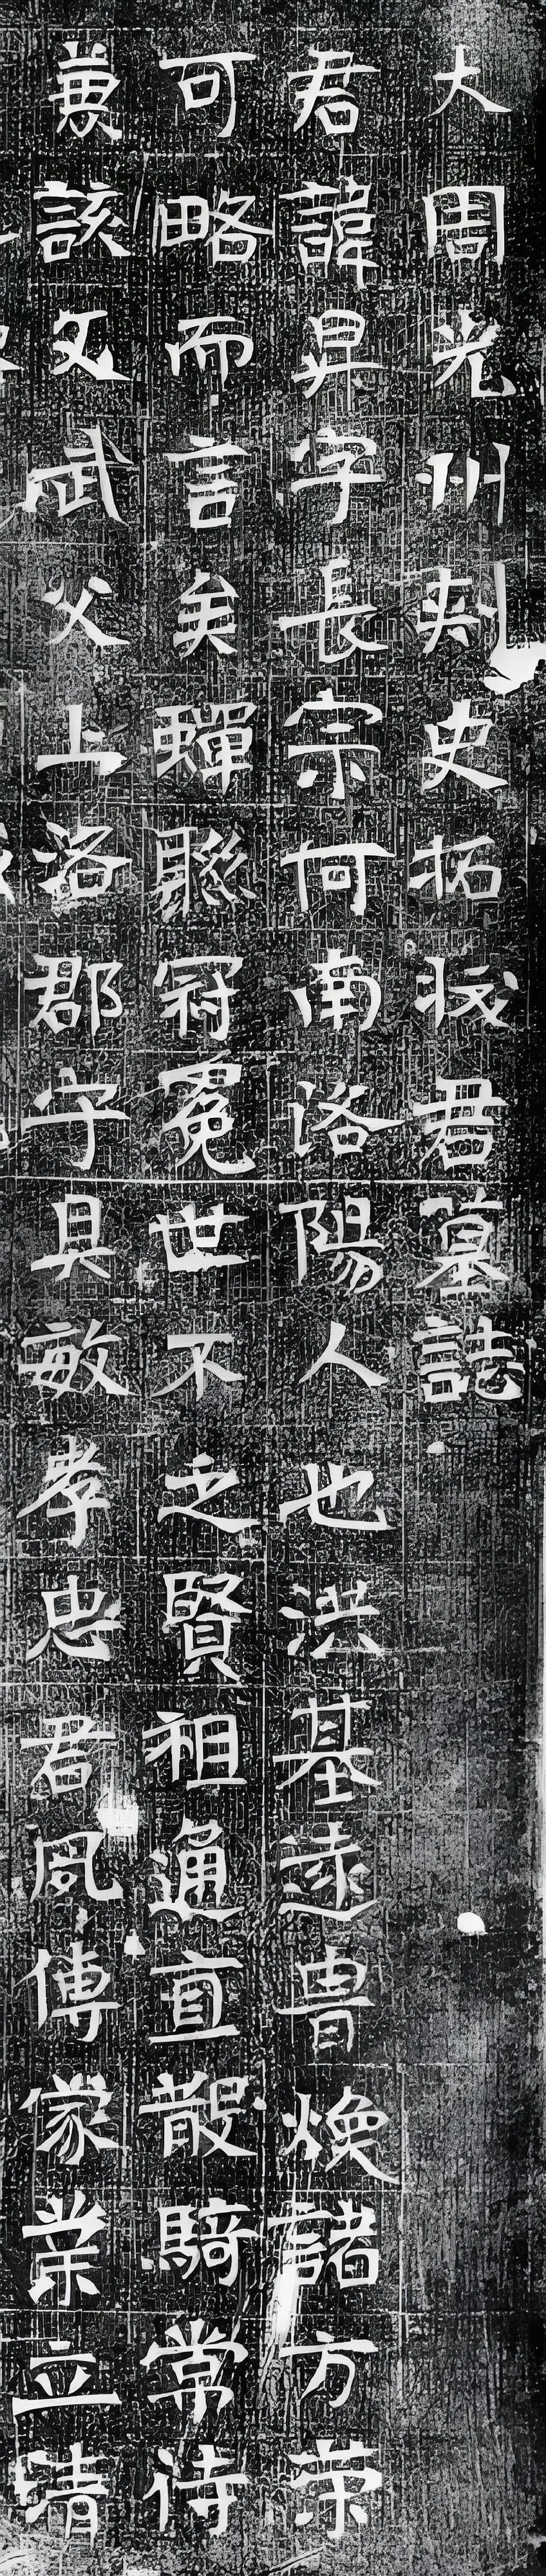 大周光州刾史拓拔君墓誌
君諱昇字長宗河南洛陽人也洪基遠胄煥諸方策
可略而言矣蟬聯冠冕世不乏賢祖通直散騎常侍
兼該文武父上洛郡守具敏孝忠君夙傳家業立清